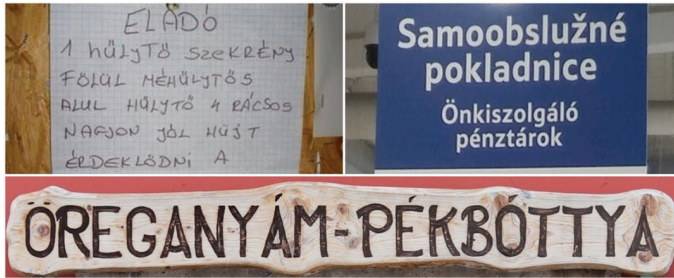 ELADÓ
1 HŰLYTŐ SZEKRÉNY
FÖLÜL MÉHŰLYTŐS
ALUL HŰLYTŐ 4 RÁCSOS
NAGJON JÓL HŰJT
ÉRDEKLŐDNI A
Samoobslužné
pokladnice
Önkiszolgáló
pénztárok
ÖREGANYÁM-PÉKBÓTTYA